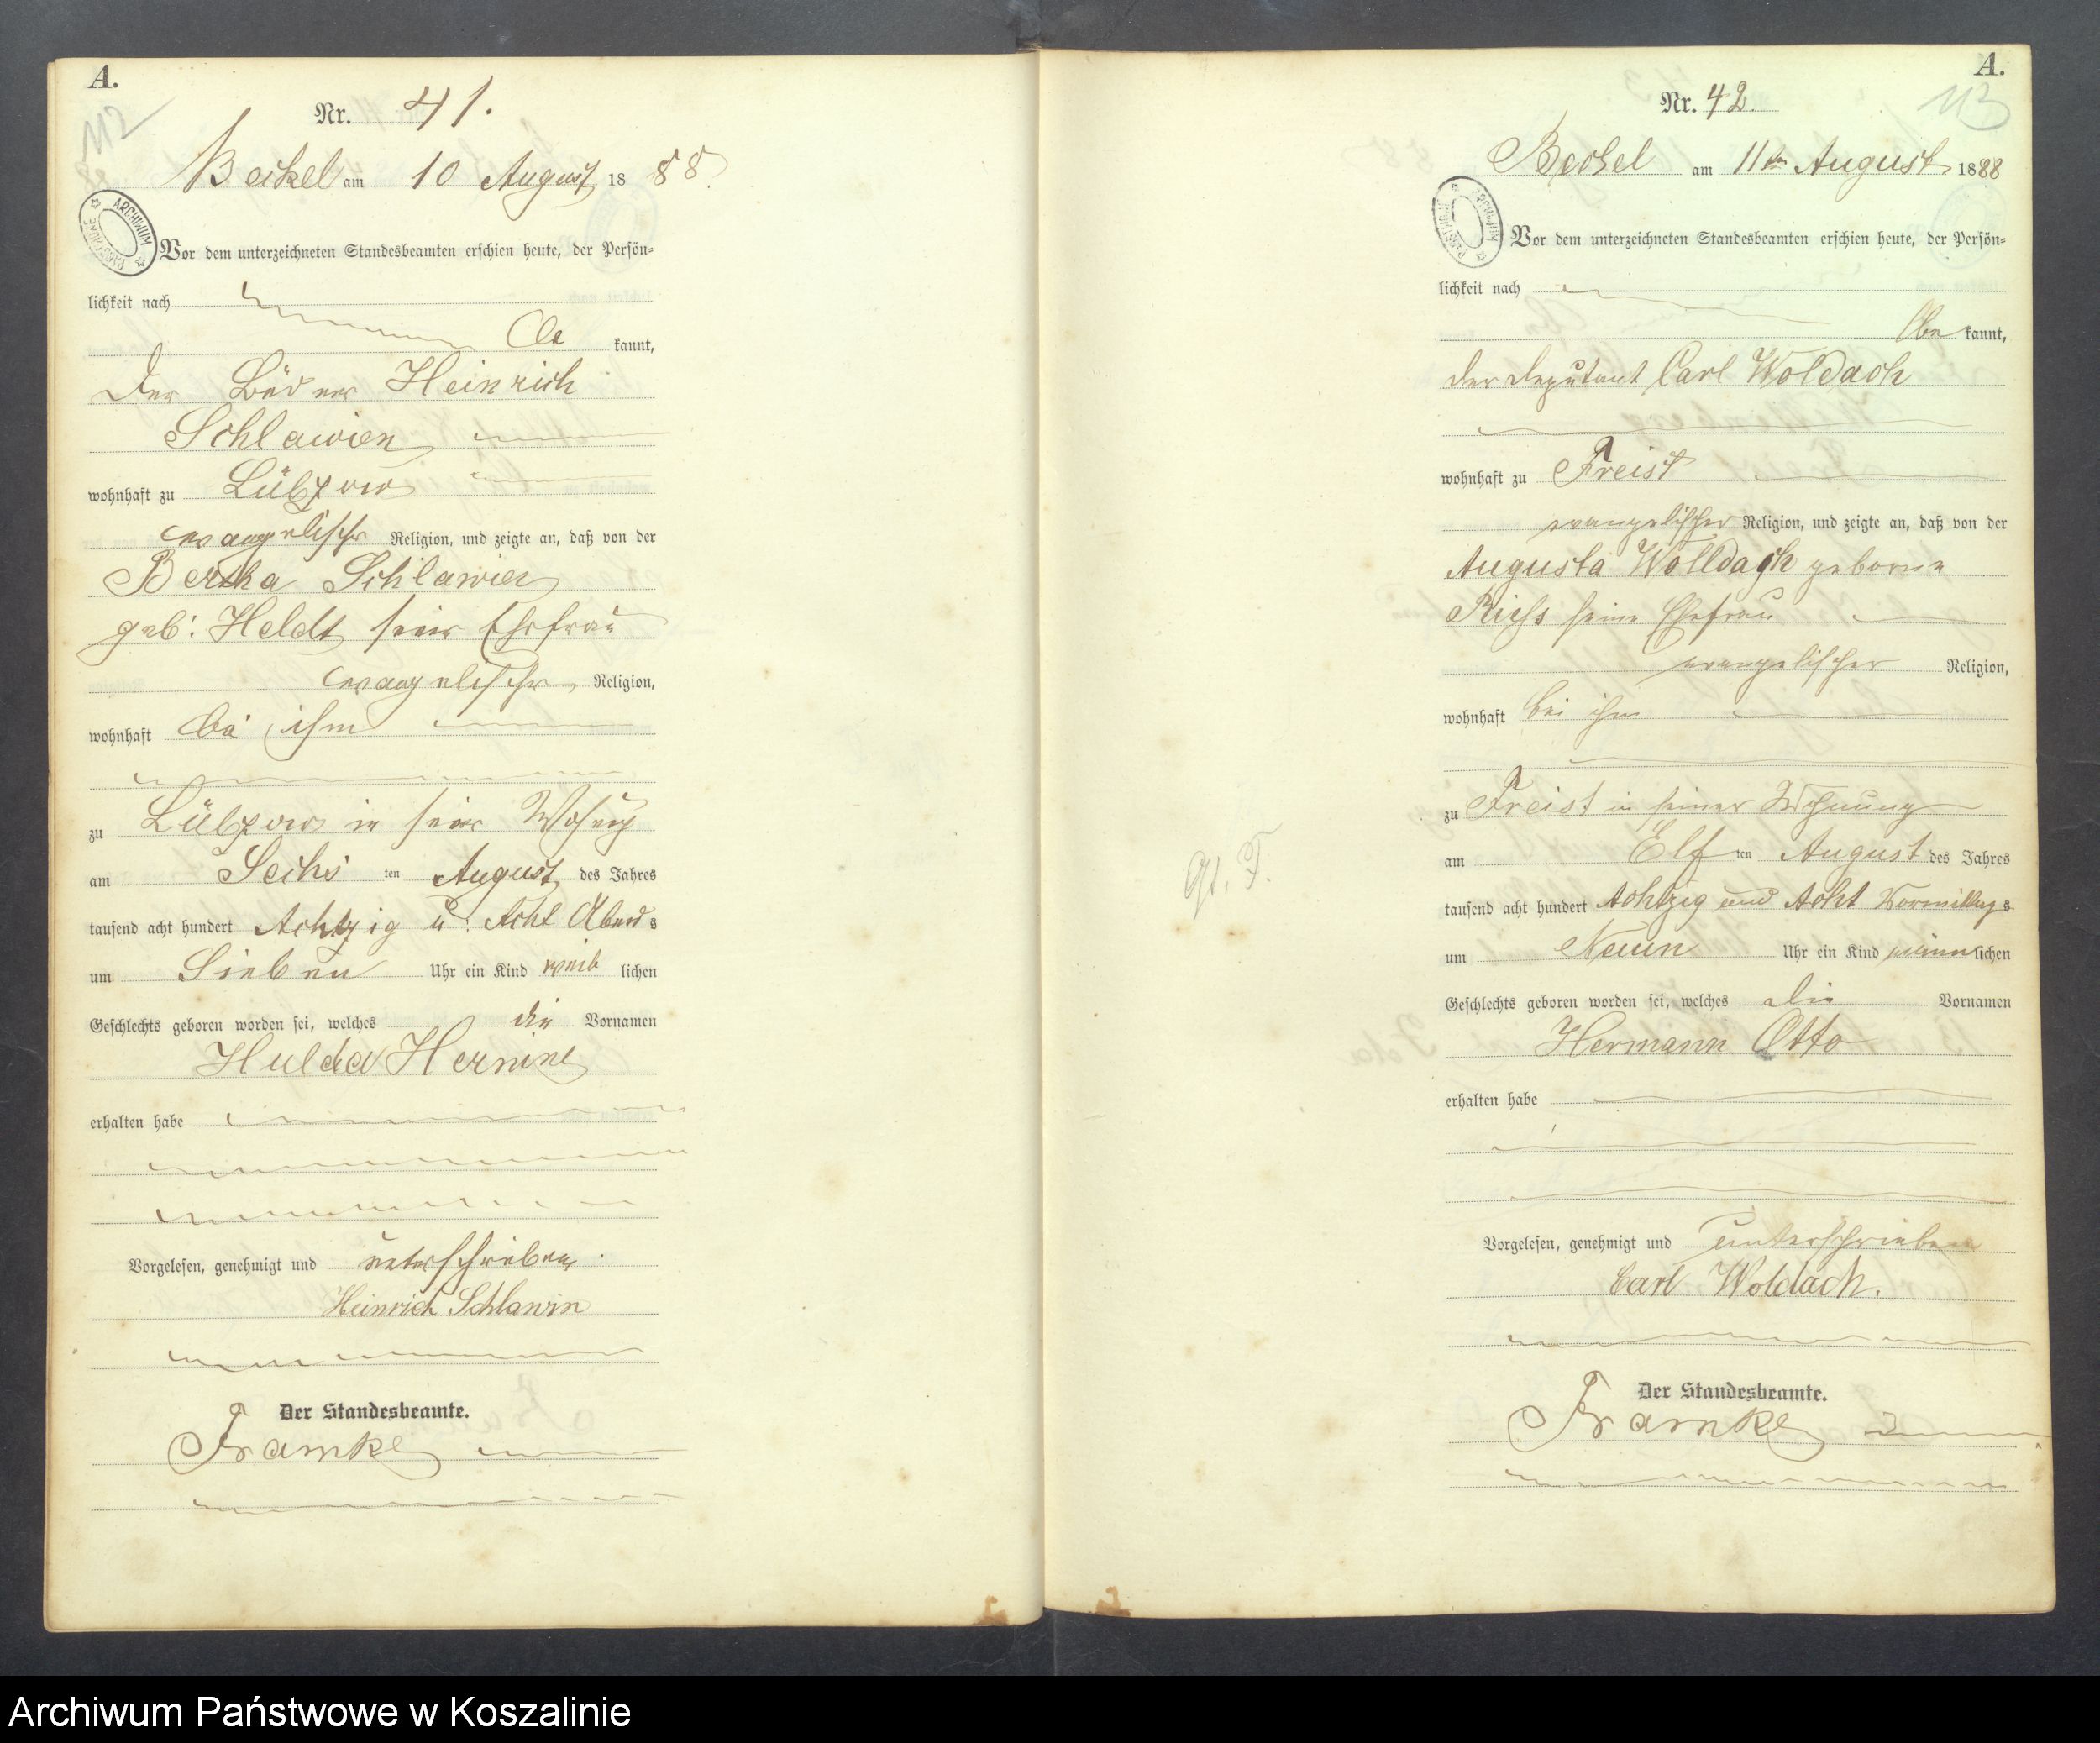 A.
112
Nr. 41.
Beckel am 10 August 1888.
ARCHIWUM PAŃSTWOWE
Vor dem unterzeichneten Standesbeamten erschien heute, der Persön-
lichkeit nach
be kannt,
der Büdner Heinrich
Schlawien
wohnhaft zu Lübzow
evangelischer Religion, und zeigte an, daß von der
Bertha Schlawien
geb: Heldt seiner Ehefrau
evangelischer Religion,
wohnhaft bei ihm
zu Lübzow in seiner Wohnung
am Sechs ten August des Jahres
tausend acht hundert Achtzig u: Acht Abends
um Sieben Uhr ein Kind weib lichen
Geschlechts geboren worden sei, welches die Vornamen
Hulda Hermine
erhalten habe
Vorgelesen, genehmigt und unterschrieben.
Heinrich Schlawin
Der Standesbeamte.
Framke
A.
113
Nr. 42.
Beckel am 11ten August 1888
ARCHIWUM PAŃSTWOWE
Vor dem unterzeichneten Standesbeamten erschien heute, der Persön-
lichkeit nach
be kannt,
der Deputant Carl Woldach
wohnhaft zu Freist
evangelischer Religion, und zeigte an, daß von der
Augusta Wolldach geborne
seine Ehefrau
evangelischer Religion,
wohnhaft bei ihm
zu Freist in seiner Wohnung
am Elf ten August des Jahres
tausend acht hundert Achtzig und Acht Vormittags
um Neun Uhr ein Kind männlichen
Geschlechts geboren worden sei, welches die Vornamen
Hermann Otto
erhalten habe
Vorgelesen, genehmigt und unterschrieben
Carl Woldach.
Der Standesbeamte.
Framke
Archiwum Państwowe w Koszalinie